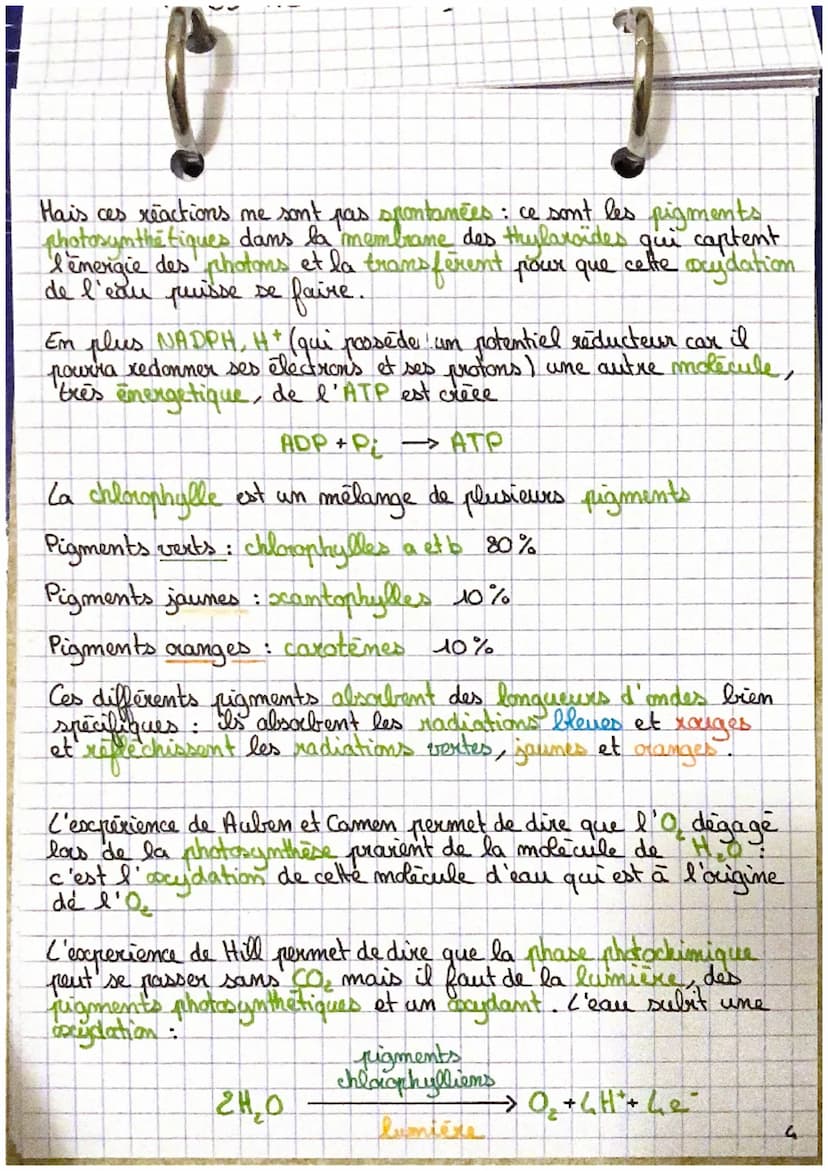 Mais ces réactions ne sont pas spontanées : ce sont les pigments
photosynthétiques dans la membrane des thylaroïdes qui captent
l'énergie des photons et la transfèrent pour que cette oxydation
de l'eau puisse se faire.
En plus NADPH, H⁺ (qui possède un potentiel réducteur car il
pourra redonner ses électrons et ses protons) une autre molécule,
très énergetique, de l'ATP est créée
ADP + Pi → ATP
La chlorophylle est un mélange de plusieurs pigments
Pigments verts : chlorophylles a et b 80%
Pigments jaunes : xantophylles 10%
Pigments oranges : carotènes 10%
Ces différents pigments absorbent des longueurs d'ondes bien
spécifiques : ils absorbent les radiations bleues et rouges
et réfléchissent les radiations vertes, jaunes et oranges.
L'expérience de Auben et Camen permet de dire que l'O₂ dégagé
lors de la photosynthèse provient de la molécule de H₂O :
c'est l'oxydation de cette molécule d'eau qui est à l'origine
de l'O₂
L'experience de Hill permet de dire que la phase photochimique
peut se passer sans CO₂ mais il faut de la lumière, des
pigments photosynthétiques et un oxydant. L'eau subit une
oxydation :
pigments
chlorophylliens
2H₂O → O₂ + 4H⁺ + 4e⁻
lumière
4